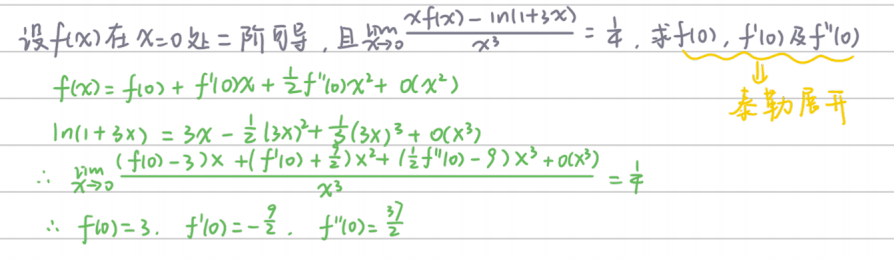 设f(x)在x=0处二阶可导,且lim x→0 (xf(x)-ln(1+3x))/x³ = 1/4,求f(0),f'(0)及f''(0)
⇓
f(x)=f(0)+f'(0)x+½f''(0)x²+o(x²)
泰勒展开
ln(1+3x)=3x-½(3x)²+⅓(3x)³+o(x³)
∴ lim x→0 ((f(0)-3)x+(f'(0)+9/2)x²+(½f''(0)-9)x³+o(x³))/x³ = 1/4
∴ f(0)=3. f'(0)=-9/2. f''(0)=37/2